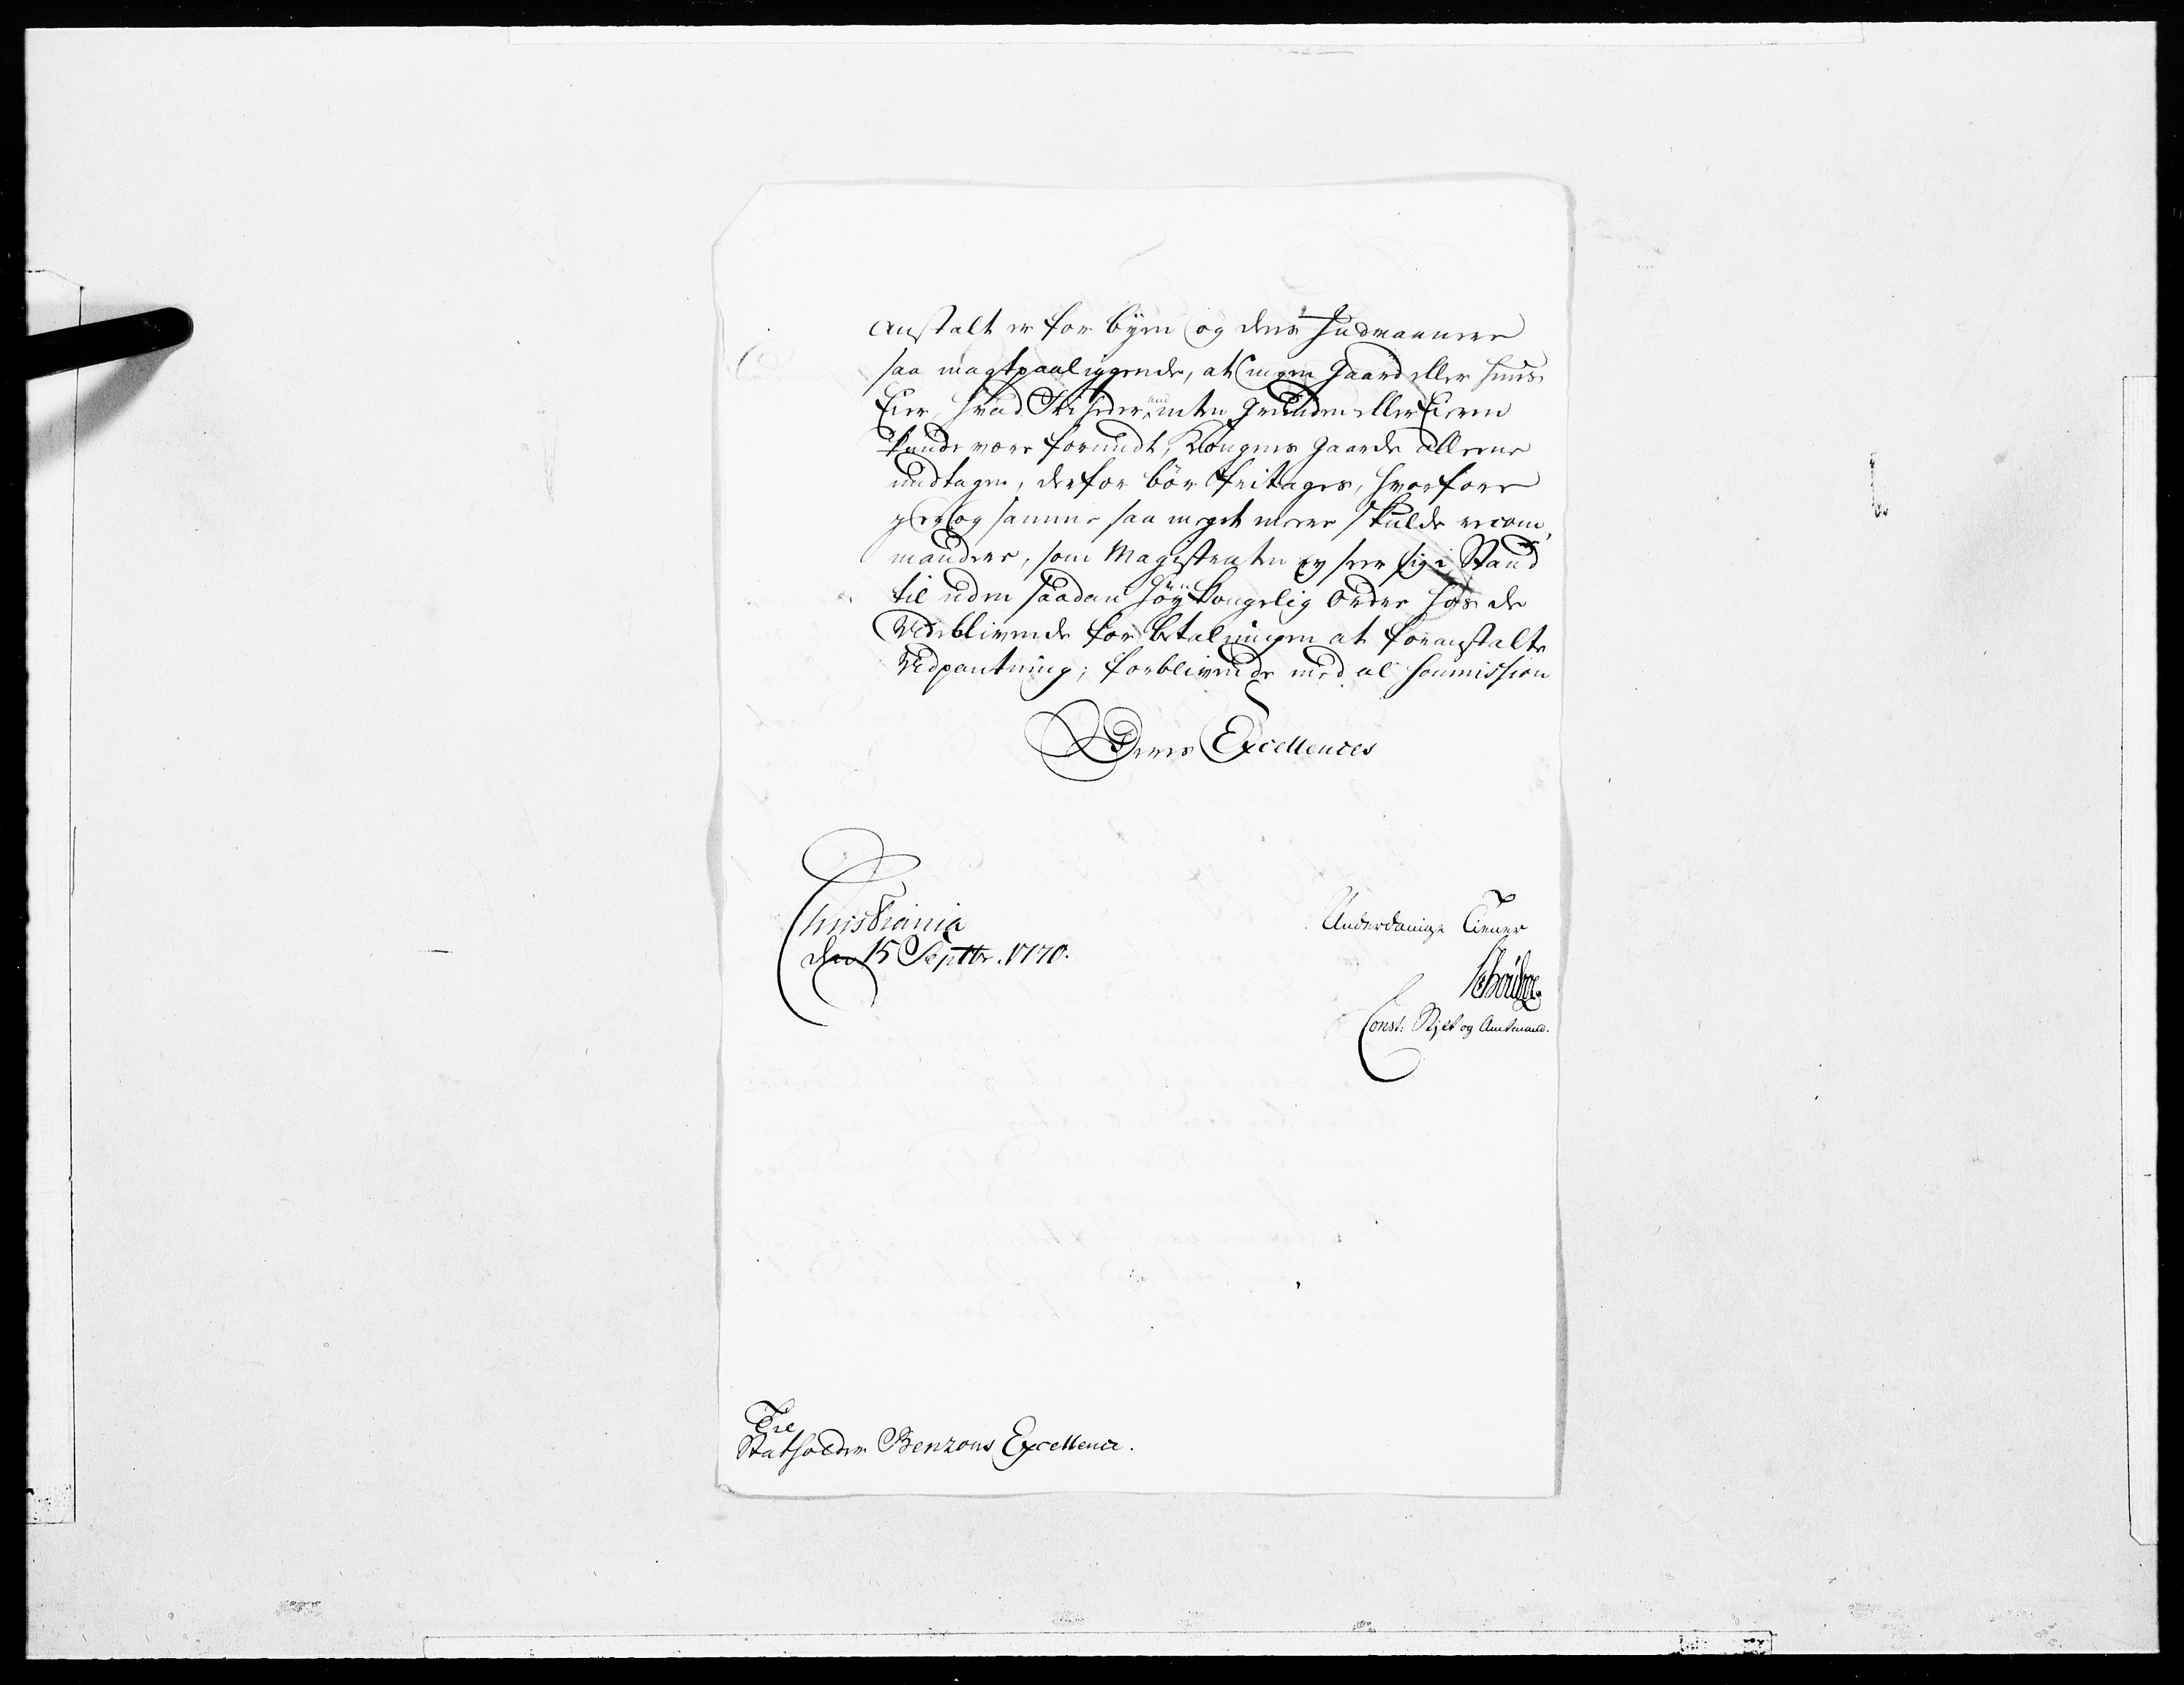 Anstalt er for byen og dens Indvaanere
saa magtpaaliggende, at ingen Gaard eller Huus
Eier, hvad Friheder end enten Grunden eller Eieren
kunde være forundt, Kongens Gaarde alleene
undtagen, derfor bør fritages, hvorfore
jeg og samme saa meget meere skulde recom¬
mandere, som Magistraten ey seer sig i Stand
til uden saadan høy Kongelig Ordre hos de
Udeblivende for betalningen at foranstalte
Udpantning; forblivende med al Soumission
Deres Excellences
Christiania
den 15 Septbr. 1770.
Underdanige Tiener
Const: Stift og Amtmand.
Til
Statholder Benzons Excellence.